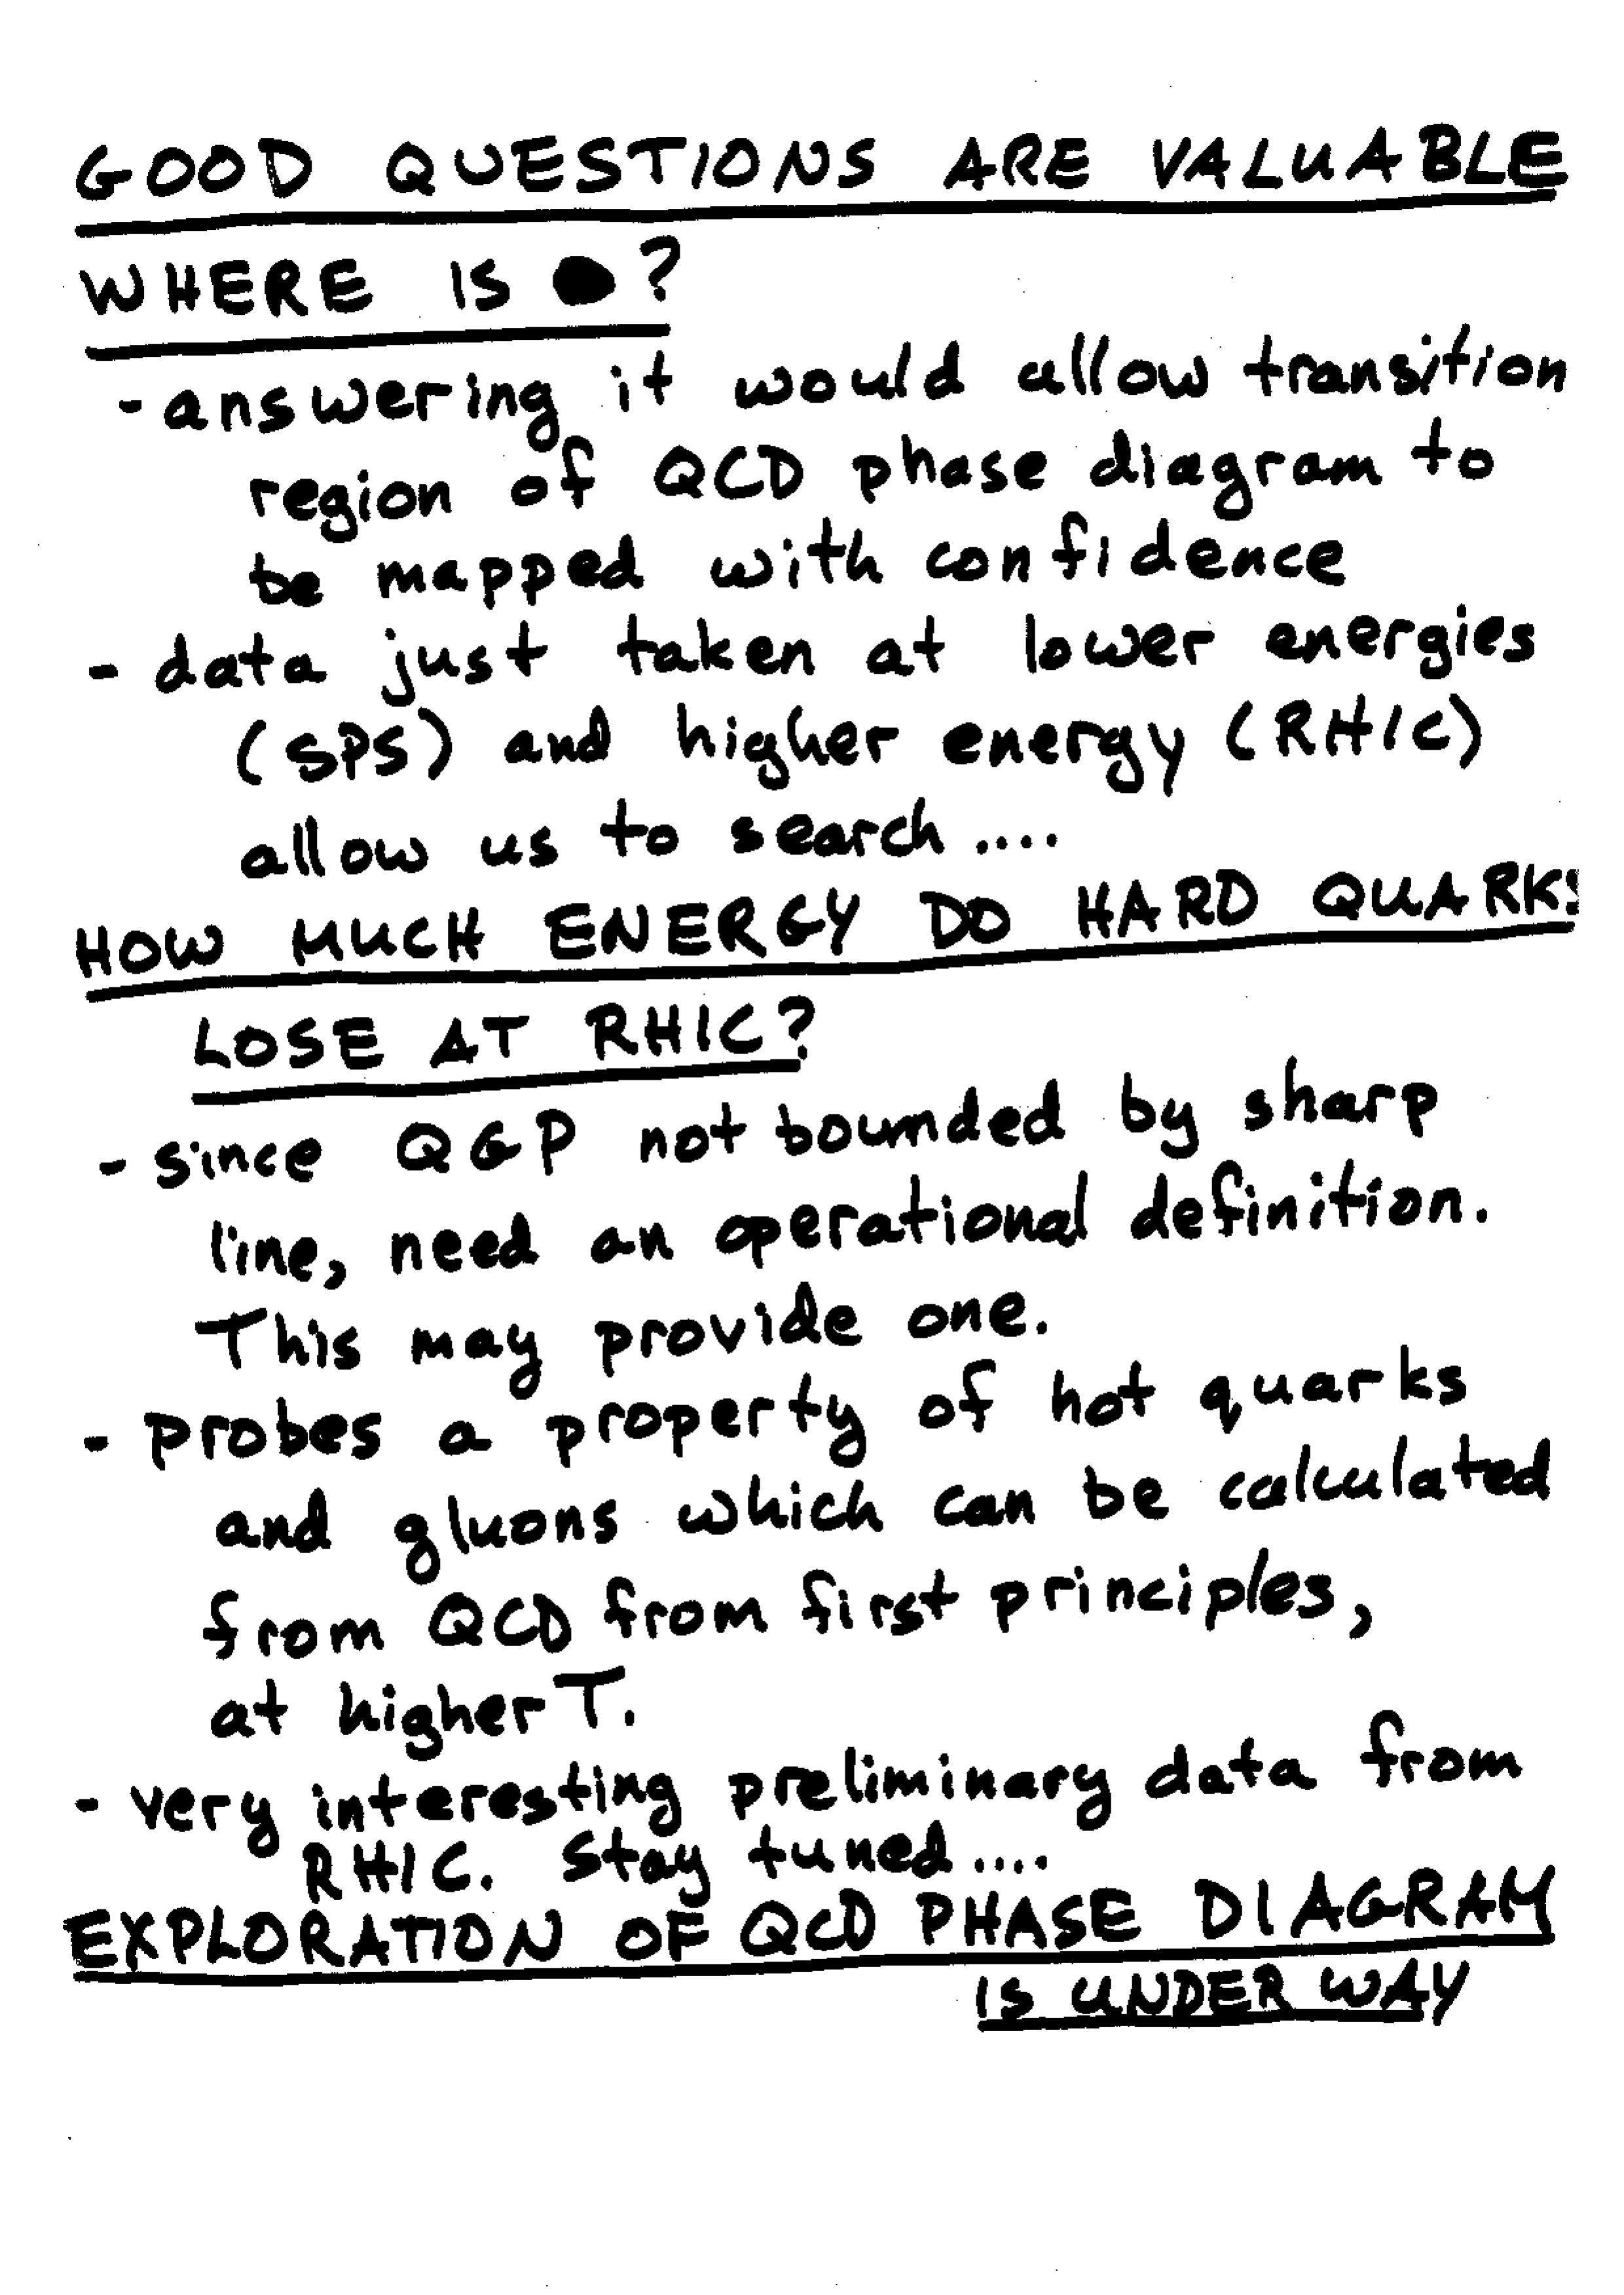 GOOD QUESTIONS ARE VALUABLE
WHERE IS ●?
- answering it would allow transition
region of QCD phase diagram to
be mapped with confidence
- data just taken at lower energies
(SPS) and higher energy (RHIC)
allow us to search....
HOW MUCH ENERGY DO HARD QUARKS
LOSE AT RHIC?
- since QGP not bounded by sharp
line, need an operational definition.
This may provide one.
- probes a property of hot quarks
and gluons which can be calculated
from QCD from first principles,
at higher T.
- very interesting preliminary data from
RHIC. Stay tuned....
EXPLORATION OF QCD PHASE DIAGRAM
IS UNDER WAY